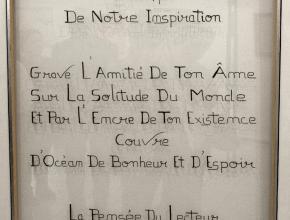 De Notre Inspiration
Grave L'Amitié De Ton Âme
Sur La Solitude Du Monde
Et Par L'Encre De Ton Existence
Couvre
D'Océan De Bonheur Et D'Espoir
La Pensée Du Lecteur